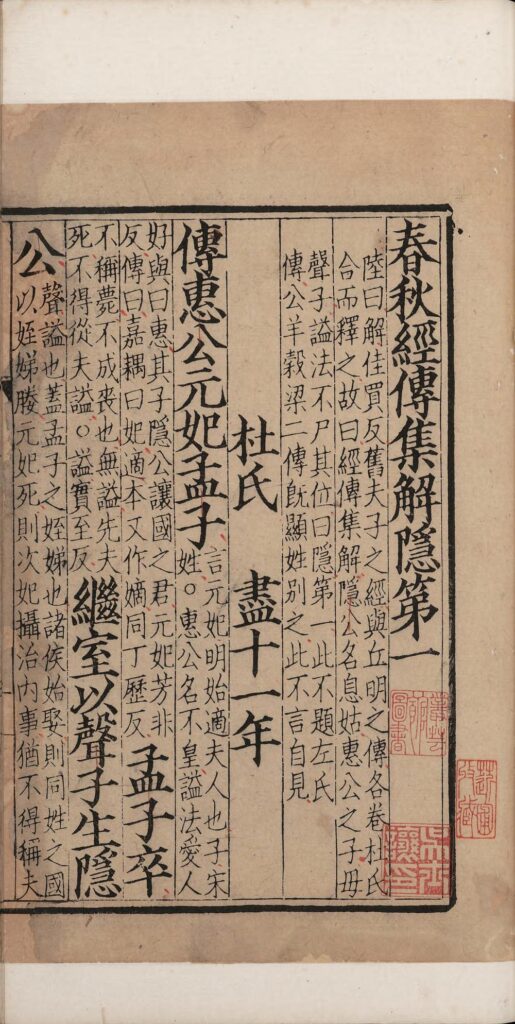 春秋經傳集解隱第一
陸曰解佳買反舊夫子之經與丘明之傳各卷杜氏
合而釋之故曰經傳集解隱公名息姑惠公之子母
聲子謚法不尸其位曰隱第一此不題左氏
傳公羊穀梁二傳旣顯姓別之此不言自見
杜氏 盡十一年
傳惠公元妃孟子
言元妃明始適夫人也子宋
姓○惠公名不皇謚法愛人
好與曰惠其子隱公讓國之君元妃芳非
反傳曰嘉耦曰妃適本又作嫡同丁歷反
孟子卒
不稱薨不成喪也無謚先夫
死不得從夫謚○謚實至反
繼室以聲子生隱
公
聲謚也蓋孟子之姪娣也諸侯始娶則同姓之國
以姪娣媵元妃死則次妃攝治內事猶不得稱夫